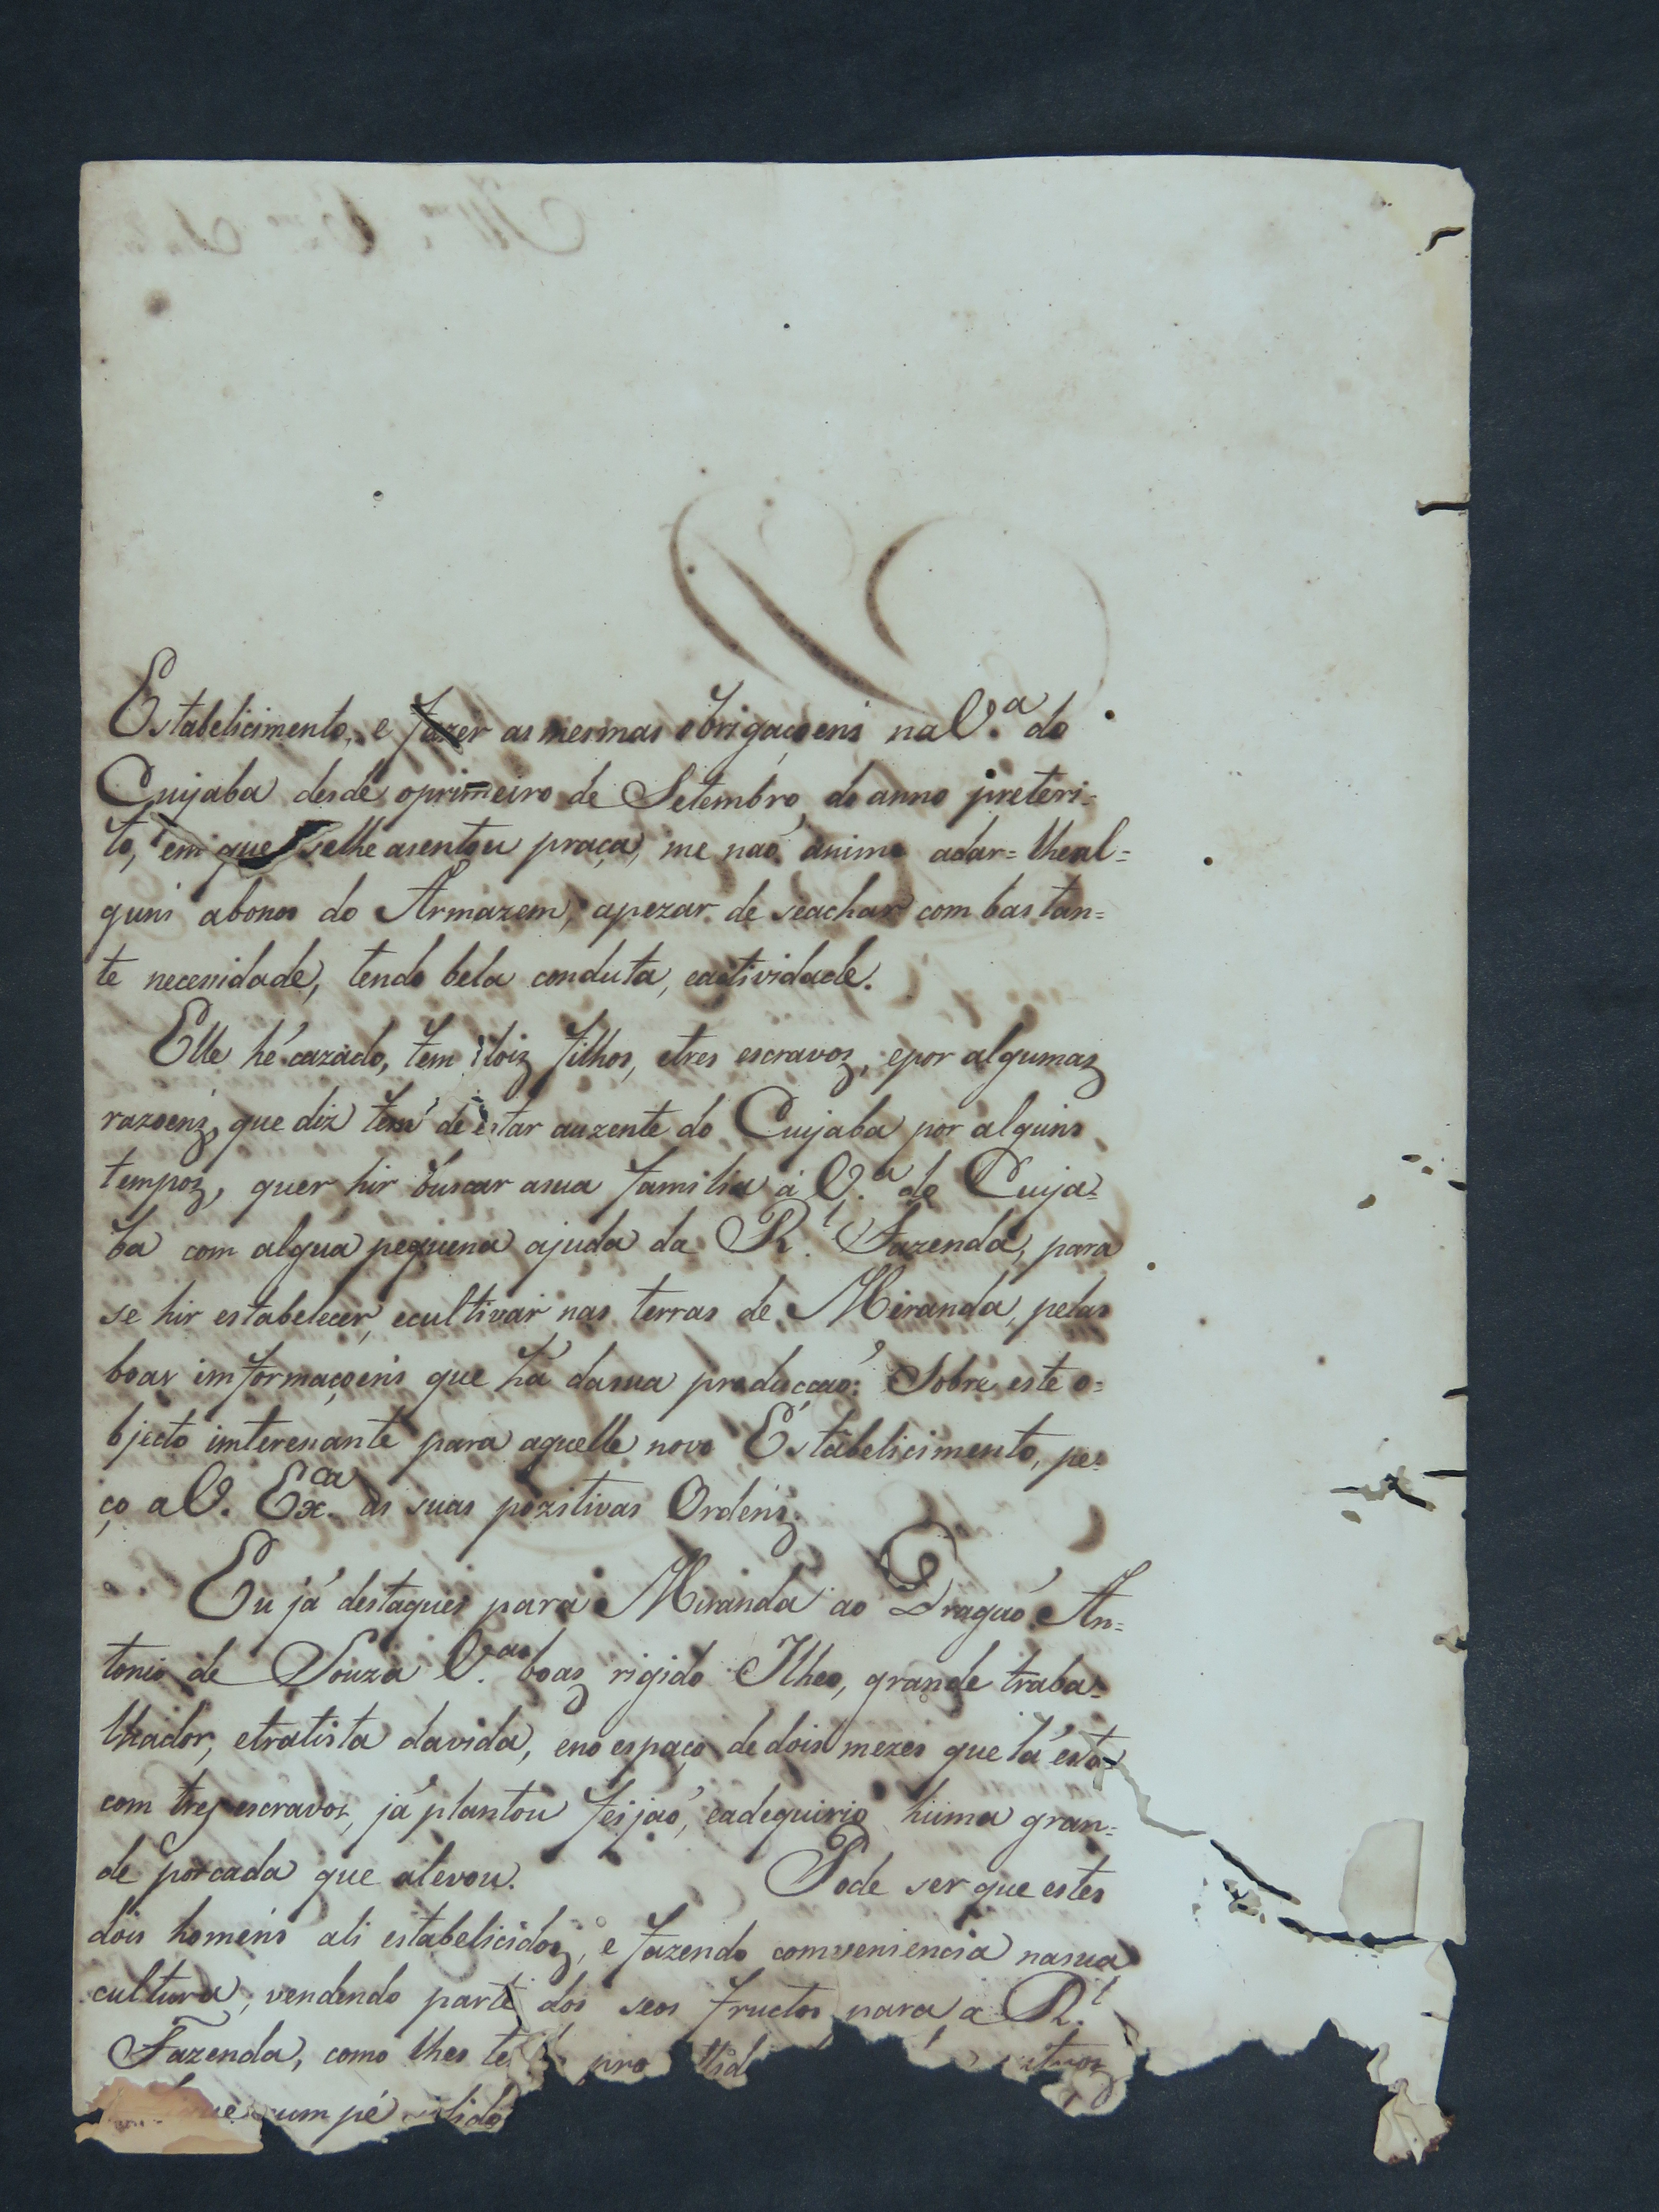 Estabelicimento, e fazer as mesmas obrigaçoens na V.ª do
Cuijaba desde oprimeiro de Setembro do anno preteri=
to, em que selhe asentou praça, me naõ animo adar=lheal=
guns abonos do Armazem, apezar de seachar com bastan=
te necessidade, tendo bela conduta, eactividade.
Elle hé cazado, tem doiz filhos, etres escravoz, epor algumaz
razoenz, que diz tem de estar auzente do Cuijaba por alguns
tempoz, quer hir buscar asua familia á V.ª do Cuija=
ba com algua pequena ajuda da R.l Fazenda, para
se hir estabelecer, ecultivar nas terras de Miranda, pelas
boas imformaçoens que há dasua producçaõ: Sobre este o=
bjecto imteresante para aquelle novo Estabelicimento, pe=
ço a V. Ex.ca as suas pozitivas Ordenz.
Eu já destaquei para Miranda ao Dragaõ An=
tonio de Souza V.as boaz rigido Ilheo, grande traba=
lhador, etratista davida, eno espaço de dois mezes que lá está
com trez escravos, já plantou feijaõ, eadequirio huma gran=
de porcada que alevou. Pode ser que estes
dois homens ali estabelicidoz, e fazendo comveniencia nasua
cultura, vendendo parte dos seos fructos para a R.l
Fazenda, como lhes
um pé